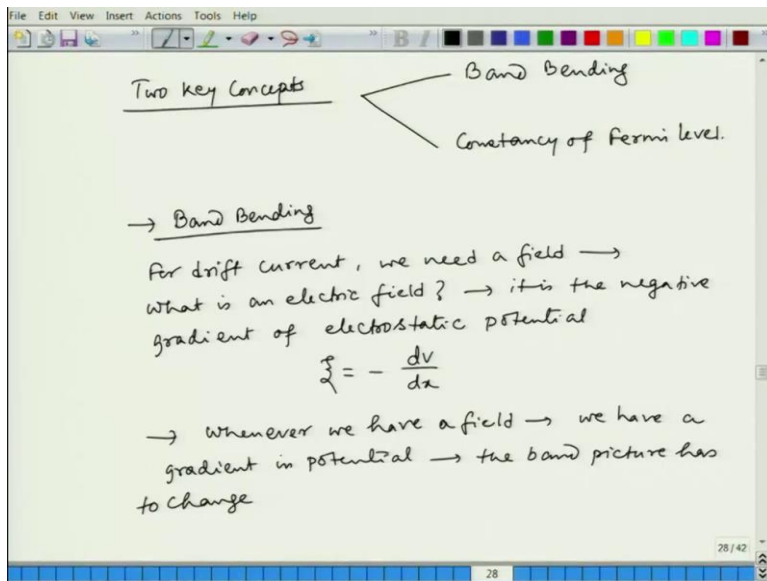 File Edit View Insert Actions Tools Help
B I
Two Key Concepts
Band Bending
Constancy of Fermi level.
→ Band Bending
For drift current, we need a field →
what is an electric field? → it is the negative
gradient of electrostatic potential
ξ = - dv/dx
→ whenever we have a field → we have a
gradient in potential → the band picture has
to change
28/42
28